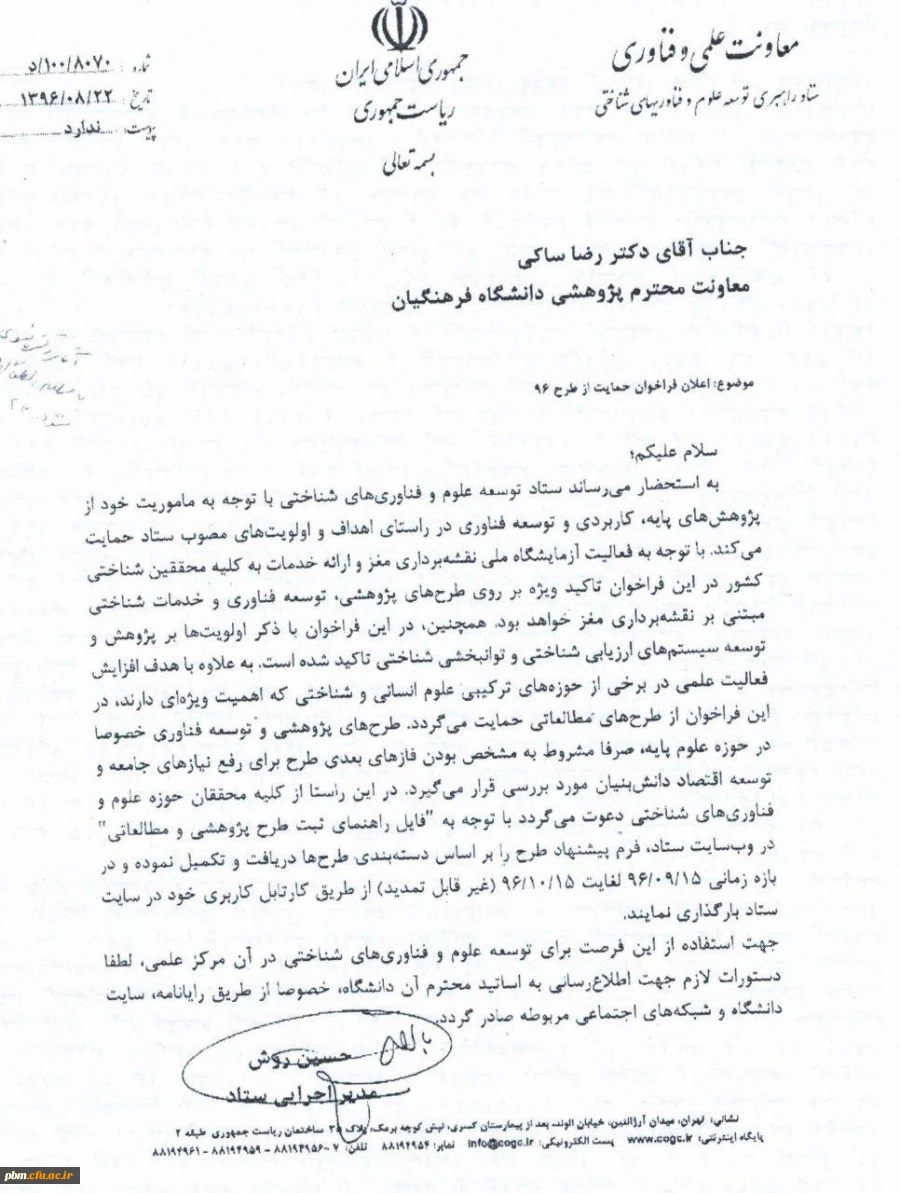 معاونت علمی و فناوری
ستاد راهبری توسعه علوم و فناوریهای شناختی
جمهوری اسلامی ایران
ریاست جمهوری
بسمه تعالی
شماره: ۱۰۰/۸۰۷۰/د
تاریخ: ۱۳۹۶/۰۸/۲۲
پیوست: ندارد
جناب آقای دکتر رضا ساکی
معاونت محترم پژوهشی دانشگاه فرهنگیان
موضوع: اعلان فراخوان حمایت از طرح ۹۶
سلام علیکم؛
به استحضار می‌رساند ستاد توسعه علوم و فناوری‌های شناختی با توجه به ماموریت خود از
پژوهش‌های پایه، کاربردی و توسعه فناوری در راستای اهداف و اولویت‌های مصوب ستاد حمایت
می‌کند. با توجه به فعالیت آزمایشگاه ملی نقشه‌برداری مغز و ارائه خدمات به کلیه محققین شناختی
کشور در این فراخوان تاکید ویژه بر روی طرح‌های پژوهشی، توسعه فناوری و خدمات شناختی
مبتنی بر نقشه‌برداری مغز خواهد بود. همچنین، در این فراخوان با ذکر اولویت‌ها بر پژوهش و
توسعه سیستم‌های ارزیابی شناختی و توانبخشی شناختی تاکید شده است. به علاوه با هدف افزایش
فعالیت علمی در برخی از حوزه‌های ترکیبی علوم انسانی و شناختی که اهمیت ویژه‌ای دارند، در
این فراخوان از طرح‌های مطالعاتی حمایت می‌گردد. طرح‌های پژوهشی و توسعه فناوری خصوصا
در حوزه علوم پایه، صرفا مشروط به مشخص بودن فازهای بعدی طرح برای رفع نیازهای جامعه و
توسعه اقتصاد دانش‌بنیان مورد بررسی قرار می‌گیرد. در این راستا از کلیه محققان حوزه علوم و
فناوری‌های شناختی دعوت می‌گردد با توجه به "فایل راهنمای ثبت طرح پژوهشی و مطالعاتی"
در وب‌سایت ستاد، فرم پیشنهاد طرح را بر اساس دسته‌بندی طرح‌ها دریافت و تکمیل نموده و در
بازه زمانی ۹۶/۰۹/۱۵ لغایت ۹۶/۱۰/۱۵ (غیر قابل تمدید) از طریق کارتابل کاربری خود در سایت
ستاد بارگذاری نمایند.
جهت استفاده از این فرصت برای توسعه علوم و فناوری‌های شناختی در آن مرکز علمی، لطفا
دستورات لازم جهت اطلاع‌رسانی به اساتید محترم آن دانشگاه، خصوصا از طریق رایانامه، سایت
دانشگاه و شبکه‌های اجتماعی مربوطه صادر گردد.
حسین روش
مدیر اجرایی ستاد
نشانی: تهران، میدان آرژانتین، خیابان الوند، بعد از بیمارستان کسری، نبش کوچه برمک، پلاک ۳۵ ساختمان ریاست جمهوری طبقه ۲
پایگاه اینترنتی: www.cogc.ir پست الکترونیکی: info@cogc.ir نمابر: ۸۸۱۹۴۹۵۴ تلفن: ۸۸۱۹۴۹۵۶-۷ - ۸۸۱۹۴۹۵۹ - ۸۸۱۹۴۹۶۱
pbm.cfu.ac.ir